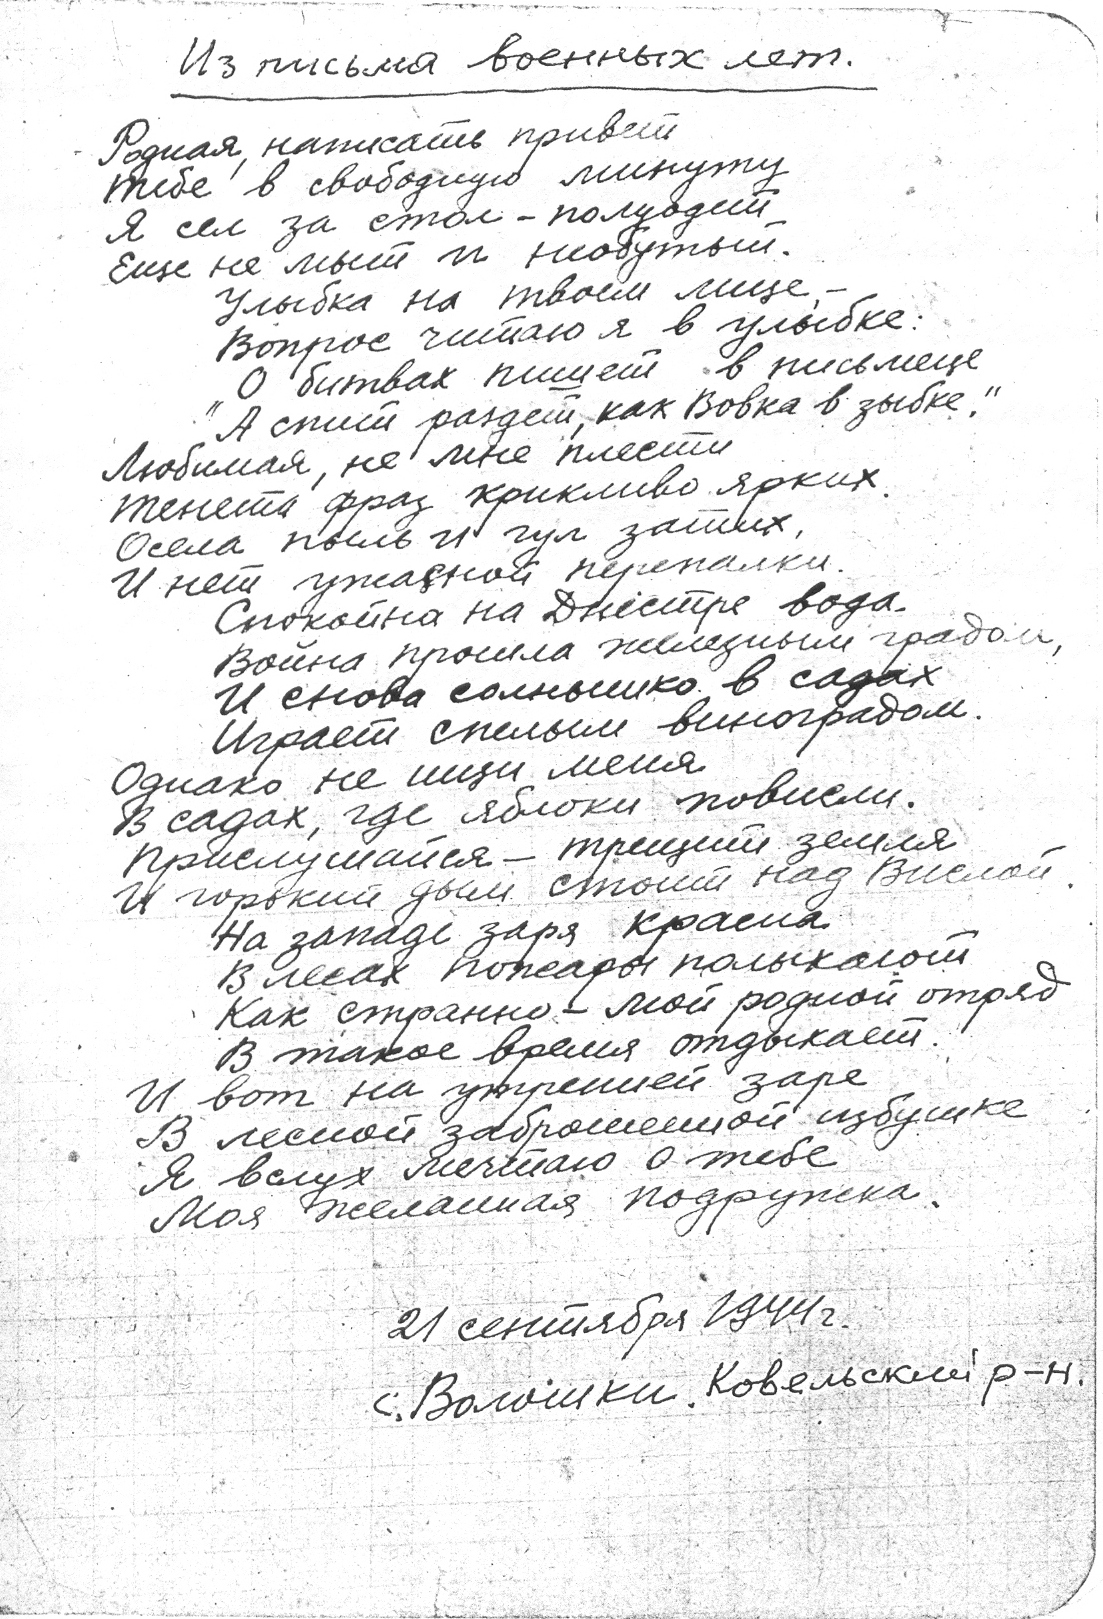 Из письма военных лет.
Родная, написать привет
Тебе в свободную минуту
Я сел за стол – полуодет
Еще не мыт и необутый.
Улыбка на твоем лице, –
Вопрос читаю я в улыбке:
О битвах пишет в письмеце
"А спит раздет, как Вовка в зыбке."
Любимая, не мне плести
Тенета фраз крикливо ярких.
Осела пыль и гул затих,
И нет ужасной перепалки.
Спокойна на Днестре вода.
Война прошла железным градом,
И снова солнышко в садах
Играет спелым виноградом.
Однако не ищи меня
В садах, где яблоки повисли.
Прислушайся – трещит земля
И горький дым стоит над Вислой.
На западе заря красна
В лесах пожары полыхают
Как странно – мой родной отряд
В такое время отдыхает.
И вот на утренней заре
В лесной заброшенной избушке
Я вслух мечтаю о тебе
Моя желанная подружка.
21 сентября 1944 г.
с. Волошки. Ковельский р-н.